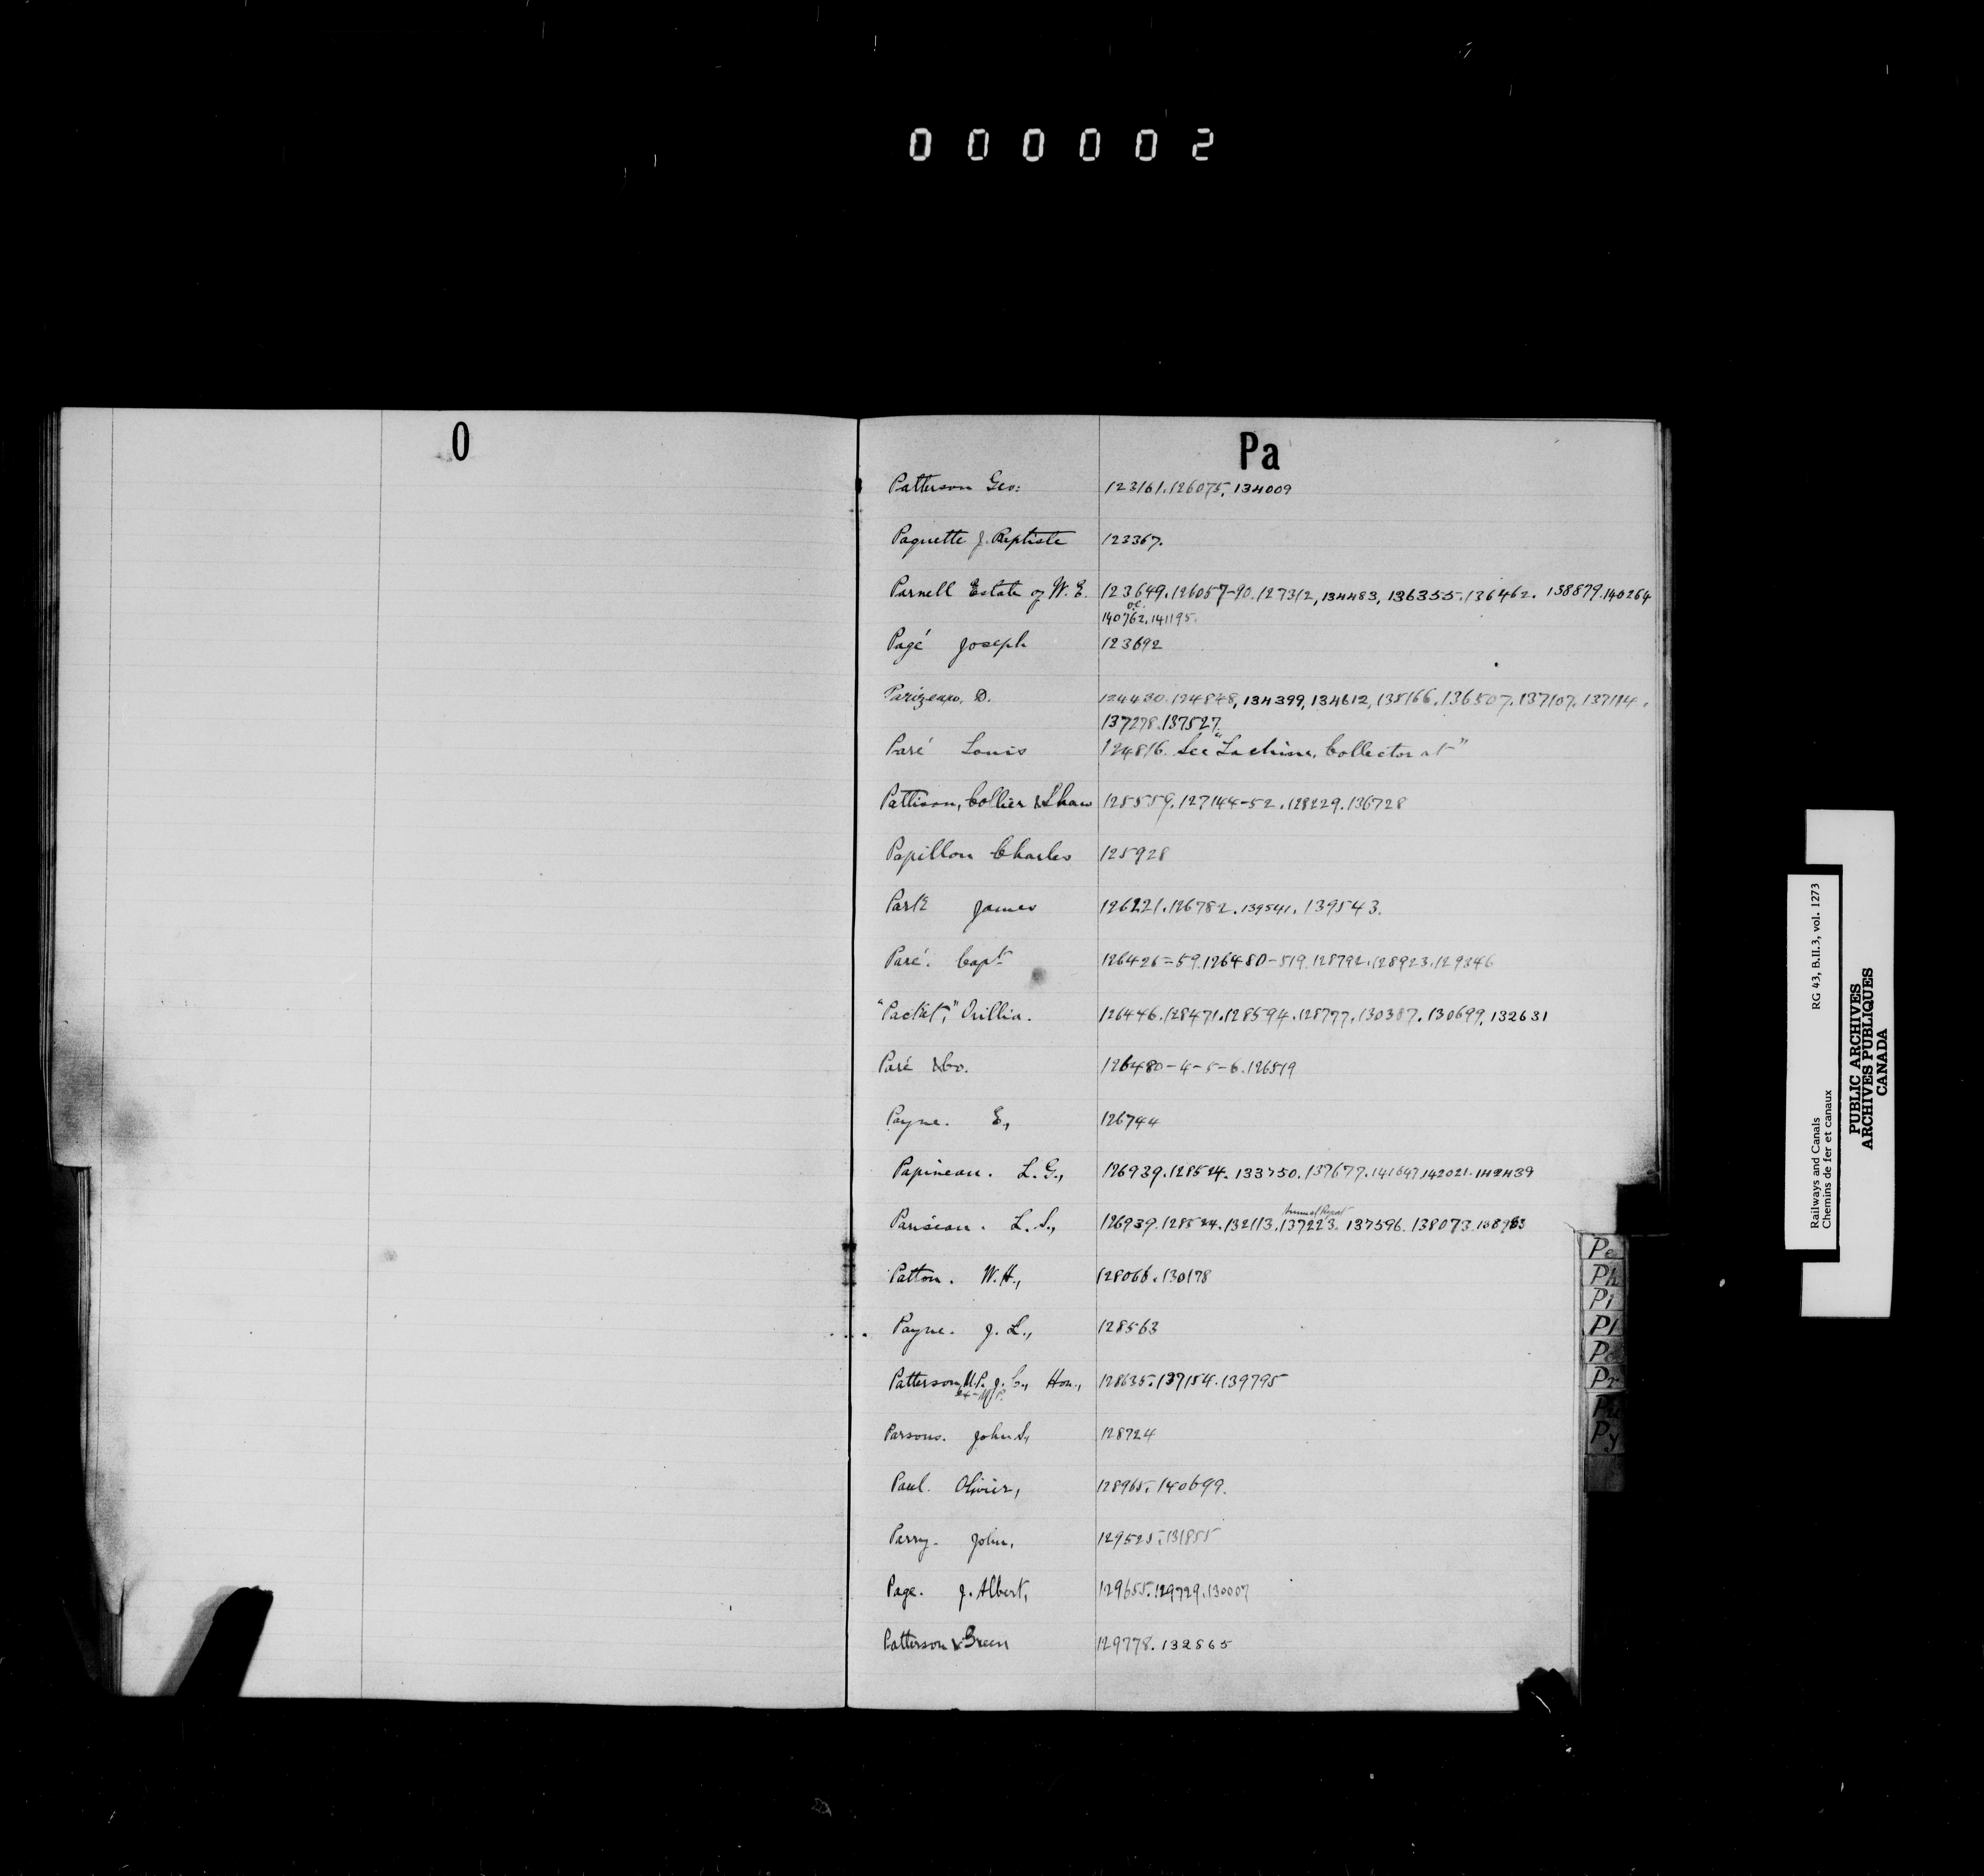 000002
O
Pa
Patterson Geo: 123161.126075, 134009
Paquette J. Baptiste 123367.
Parnell Estate of W. E. 123649.126057-90.127312, 134483, 136355.136462. 138879.140264
O.C.
140762.141195.
Pagé Joseph 123692
Parizeau, D. 124430.124848, 134399, 134612, 135166.136507.137107.137114.
137278.137527.
Paré Louis 124816. See "Lachine, Collector at"
Pattison, Collier & Shaw 125559.127144-52.128229.136728
Papillon Charles 125928
Park James 126221.126782.139541.139543.
Paré. Capt 126426=59.126480-519.128792.128923.129346
"Packet," Orillia. 126446.128471.128594.128777.130387.130699, 132631
Paré & Co. 126480-4-5-6.126519
Payne. E, 126744
Papineau. L. G., 126939.128524.133750.137677.141647.142021.142439
Annual Report
Pariseau. L. S., 126939.128524.132113.137223. 137596.138073.138983
Patton. W. H., 128066.130178
Payne. J. L., 128563
Patterson, M.P. J. C., Hon., 128635.137154.139795
Ex-M.P.
Parsons. John S, 128724
Paul. Olivier, 128965.140699.
Parry. John, 129525.131855
Page. J. Albert, 129655.129729.130007
Patterson & Green 129778.132865
Pe
Ph
Pi
Pl
Po
Pr
Pu
Py
Railways and Canals RG 43, B.II.3, vol. 1273
Chemins de fer et canaux
PUBLIC ARCHIVES
ARCHIVES PUBLIQUES
CANADA